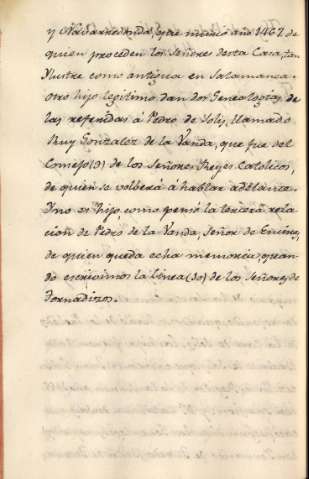 y Navarredonda, q.e murió año 1462 de
quien proceden los Señores desta Casa, tan
Ilustre como antigua en Salamanca.
otro hijo legitimo dan dos Genealogias de
las referidas à Pedro de Solis, llamado
Ruy Gonzalez de la Vanda, que fue del
Consejo (9) de los Señores Reyes Catolicos,
de quien se volberà à hablar adelante.
Y no es hijo, como pensó la tercera rela
cion de Pedro de la Vanda, Señor de Encinas,
de quien queda echa memoria, quan
do escrivimos la linea (30) de los Señores de
Tornadizos.